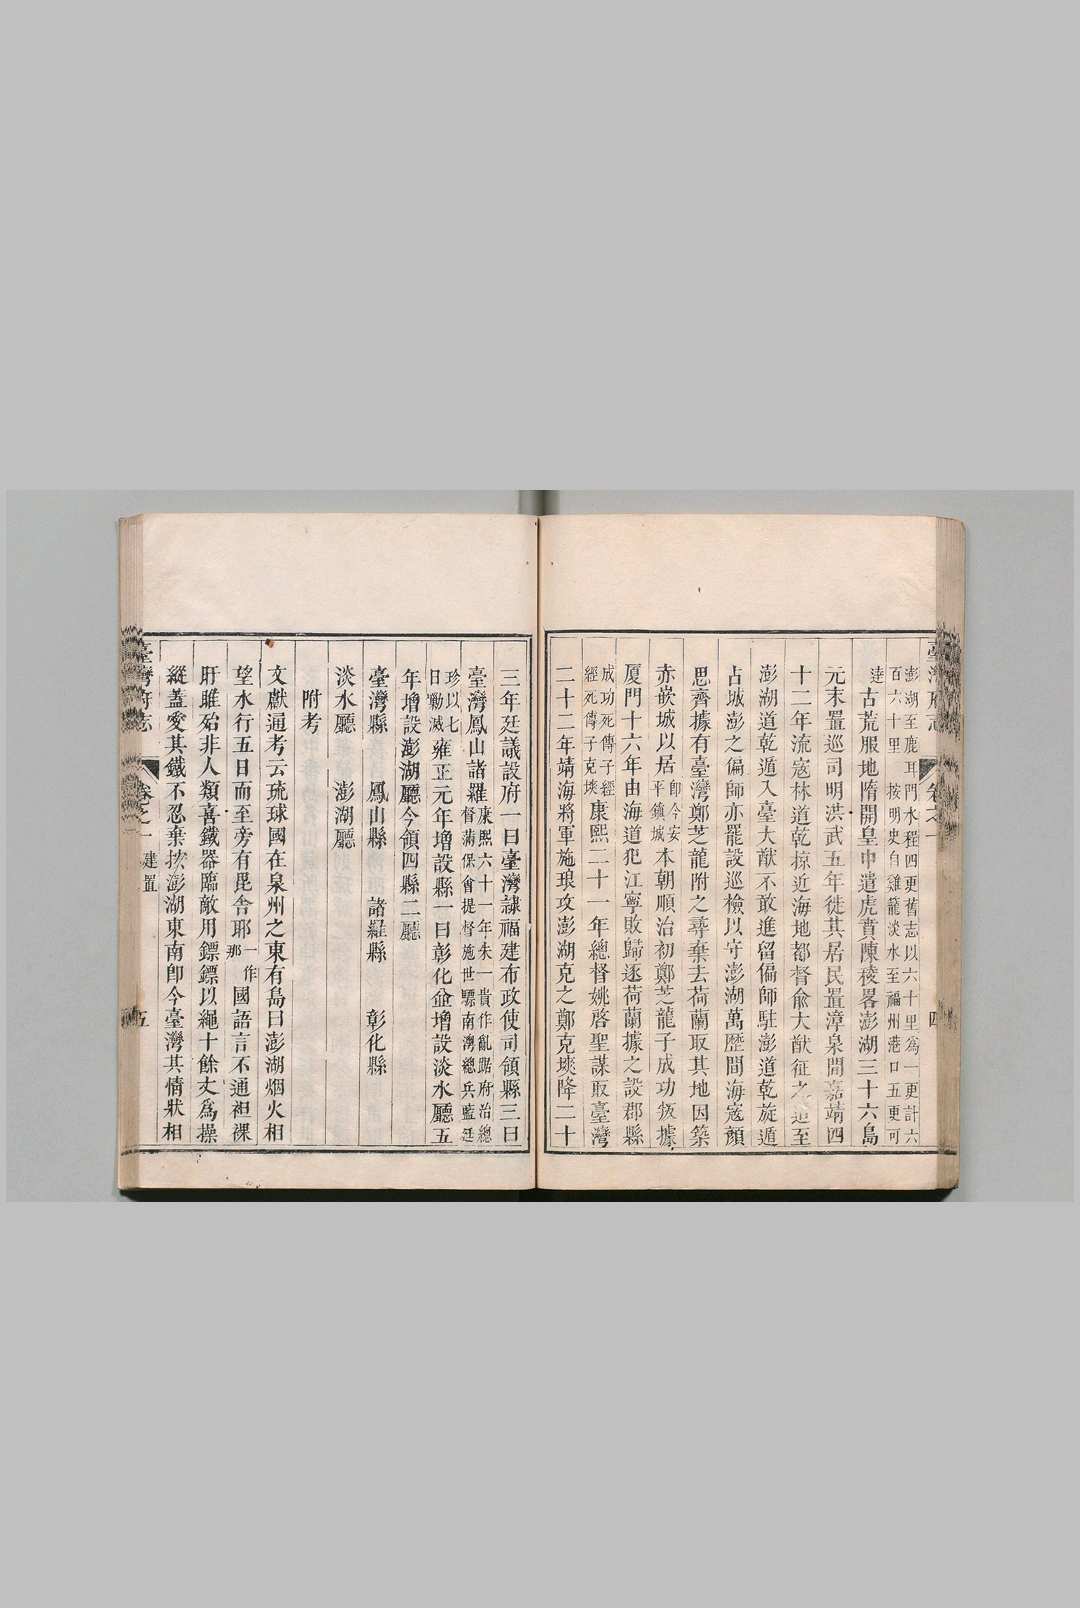 臺灣府志
卷之一
四
澎湖至鹿耳門水程四更舊志以六十里為一更計六
百六十里按明史自雞籠淡水至福州港口五更可
達古荒服地隋開皇中遣虎賁陳稜畧澎湖三十六島
元末置巡司明洪武五年徙其居民置漳泉間嘉靖四
十二年流寇林道乾掠近海地都督俞大猷征之追至
澎湖道乾遁入臺大猷不敢進留偏師駐澎道乾旋遁
占城澎之偏師亦罷設巡檢以守澎湖萬歷間海寇顏
思齊據有臺灣鄭芝龍附之尋棄去荷蘭取其地因築
赤嵌城以居即今安平鎮城本朝順治初鄭芝龍子成功叛據
厦門十六年由海道犯江寧敗歸逐荷蘭據之設郡縣
成功死傳子經經死傳子克塽康熙二十一年總督姚啓聖謀取臺灣
二十二年靖海將軍施琅攻澎湖克之鄭克塽降二十
三年廷議設府一曰臺灣隸福建布政使司領縣三曰
臺灣鳳山諸羅康熙六十一年朱一貴作亂踞府治總督滿保會提督施世驃南灣總兵藍廷
珍以七日勦滅雍正元年增設縣一曰彰化並增設淡水廳五
年增設澎湖廳今領四縣二廳
臺灣縣 鳳山縣 諸羅縣 彰化縣
淡水廳 澎湖廳
附考
文獻通考云琉球國在泉州之東有島曰澎湖烟火相
望水行五日而至旁有毘舍耶一作那國語言不通袒裸
盱睢殆非人類喜鐵器臨敵用鏢鏢以繩十餘丈為操
縱蓋愛其鐵不忍棄按澎湖東南即今臺灣其情狀相
臺灣府志
卷之一
建置
五